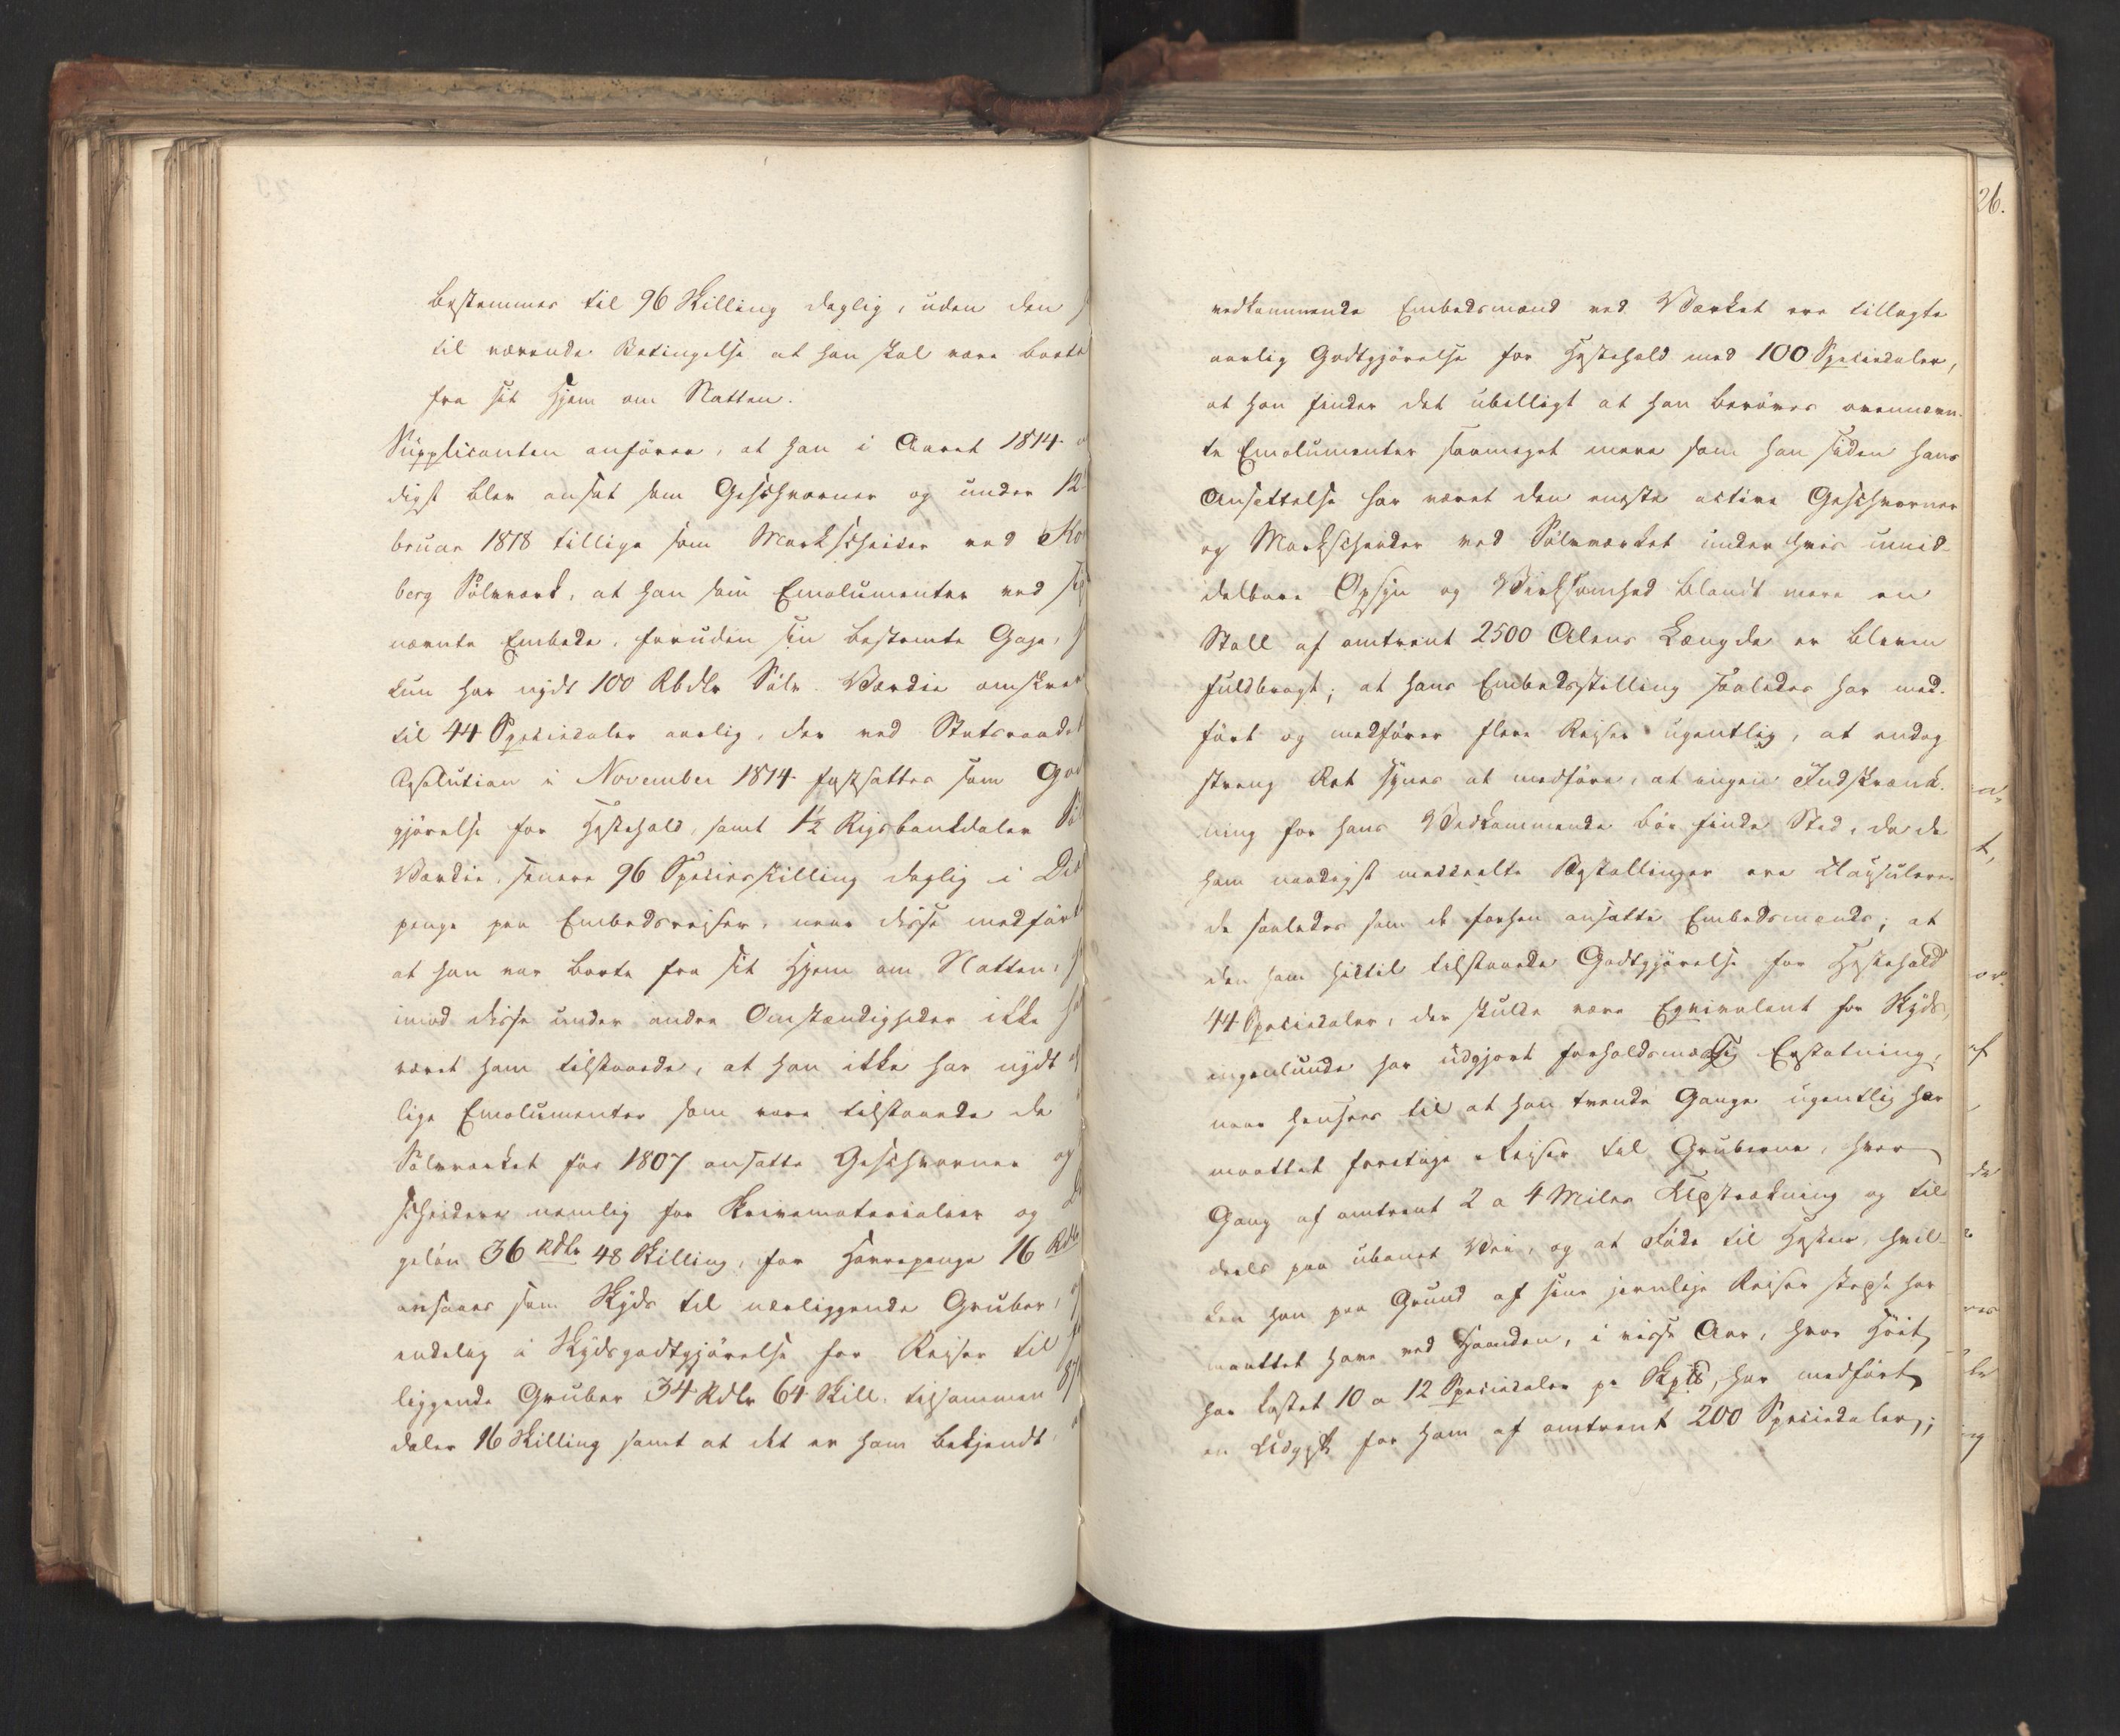 bestemmes til 96 Skilling daglig, uden den
til værende Betingelse at han skal være borte
fra sit Hjem om Natten.
Supplicanten anförer, at han i Aaret 1814
digst blev ansat som Geschworner og under 12
bruar 1818 tillige som Markscheider ved Ko
berg Sölvværk, at han som Emolumenter ved
nævnte Embede, foruden sin bestemte Gage,
kun har nydt 100 Rbdlr Sölv Værdie omskrev
til 44 Speciedaler aarlig, der ved Statsraadet
Resolution i November 1814 fastsattes som God
gjörelse for Hestehold, samt 1½ Rigsbankdaler Söl
Værdie, senere 96 Speciesskilling daglig i Diæt
penge paa Embedsreiser, naar disse medfört
at han var borte fra sit Hjem om Natten,
imod disse under andre Omstændigheder ikke ha
været ham tilstaaede, at han ikke har nydt
lige Emolumenter som vare tilstaaede de
Sölvværket för 1807 ansatte Geschworner og
scheidere nemlig for Skrivematerialier og
gelön 36 Rdlr 48 Skilling, for Havrepenge 16 Rdlr
ansees som Skyds til nærliggende Gruber,
endelig i Skydsgodtgjörelse for Reiser til
liggende Gruber 34 Rdlr 64 Skill. tilsammen 87
daler 16 Skilling samt at det er ham bekjendt
26.
vedkommende Embedsmænd ved Værket ere tillagte
aarlig Godtgjörelse for Hestehold med 100 Speciedaler,
at han finder det ubilligt at han beröves ovennævn-
te Emolumenter saameget mere som han siden hans
Ansættelse har været den eneste active Geschworner
og Markscheider ved Sölvværket under hvis umid-
delbare Opsyn og Virksomhed blandt mere en
Stoll af omtrent 2500 Alens Længde er bleven
fuldbragt; at hans Embedsstilling saaledes har med-
fört og medförer flere Reiser ugentlig, at endog
streng Ret synes at medföre, at ingen Indskrænk-
ning for hans Vedkommende bör finde Sted, da de
ham naadigst meddeelte Bestallinger ere clausulere-
de saaledes som de forhen ansatte Embedsmænds; at
den ham hidtil tilstaaede Godtgjörelse for Hestehold
44 Speciedaler, der skulde være Eqvivalent for Skyds,
ingenlunde har udgjort forholdsmæssig Erstatning,
naar hensees til at han trende Gange ugentlig har
maattet foretage Reiser til Gruberne, hver
Gang af omtrent 2 a 4 Miles Udstrækning og til
deels paa ubanet Vei, og at Föde til Hesten, hvil-
ken han paa Grund af sine jevnlige Reiser stedse har
maattet have ved Haanden, i visse Aar, hvor Höet
har kostet 10 a 12 Speciedaler pr Skp℔, har medfört
en Udgift for ham af omtrent 200 Speciedaler,;